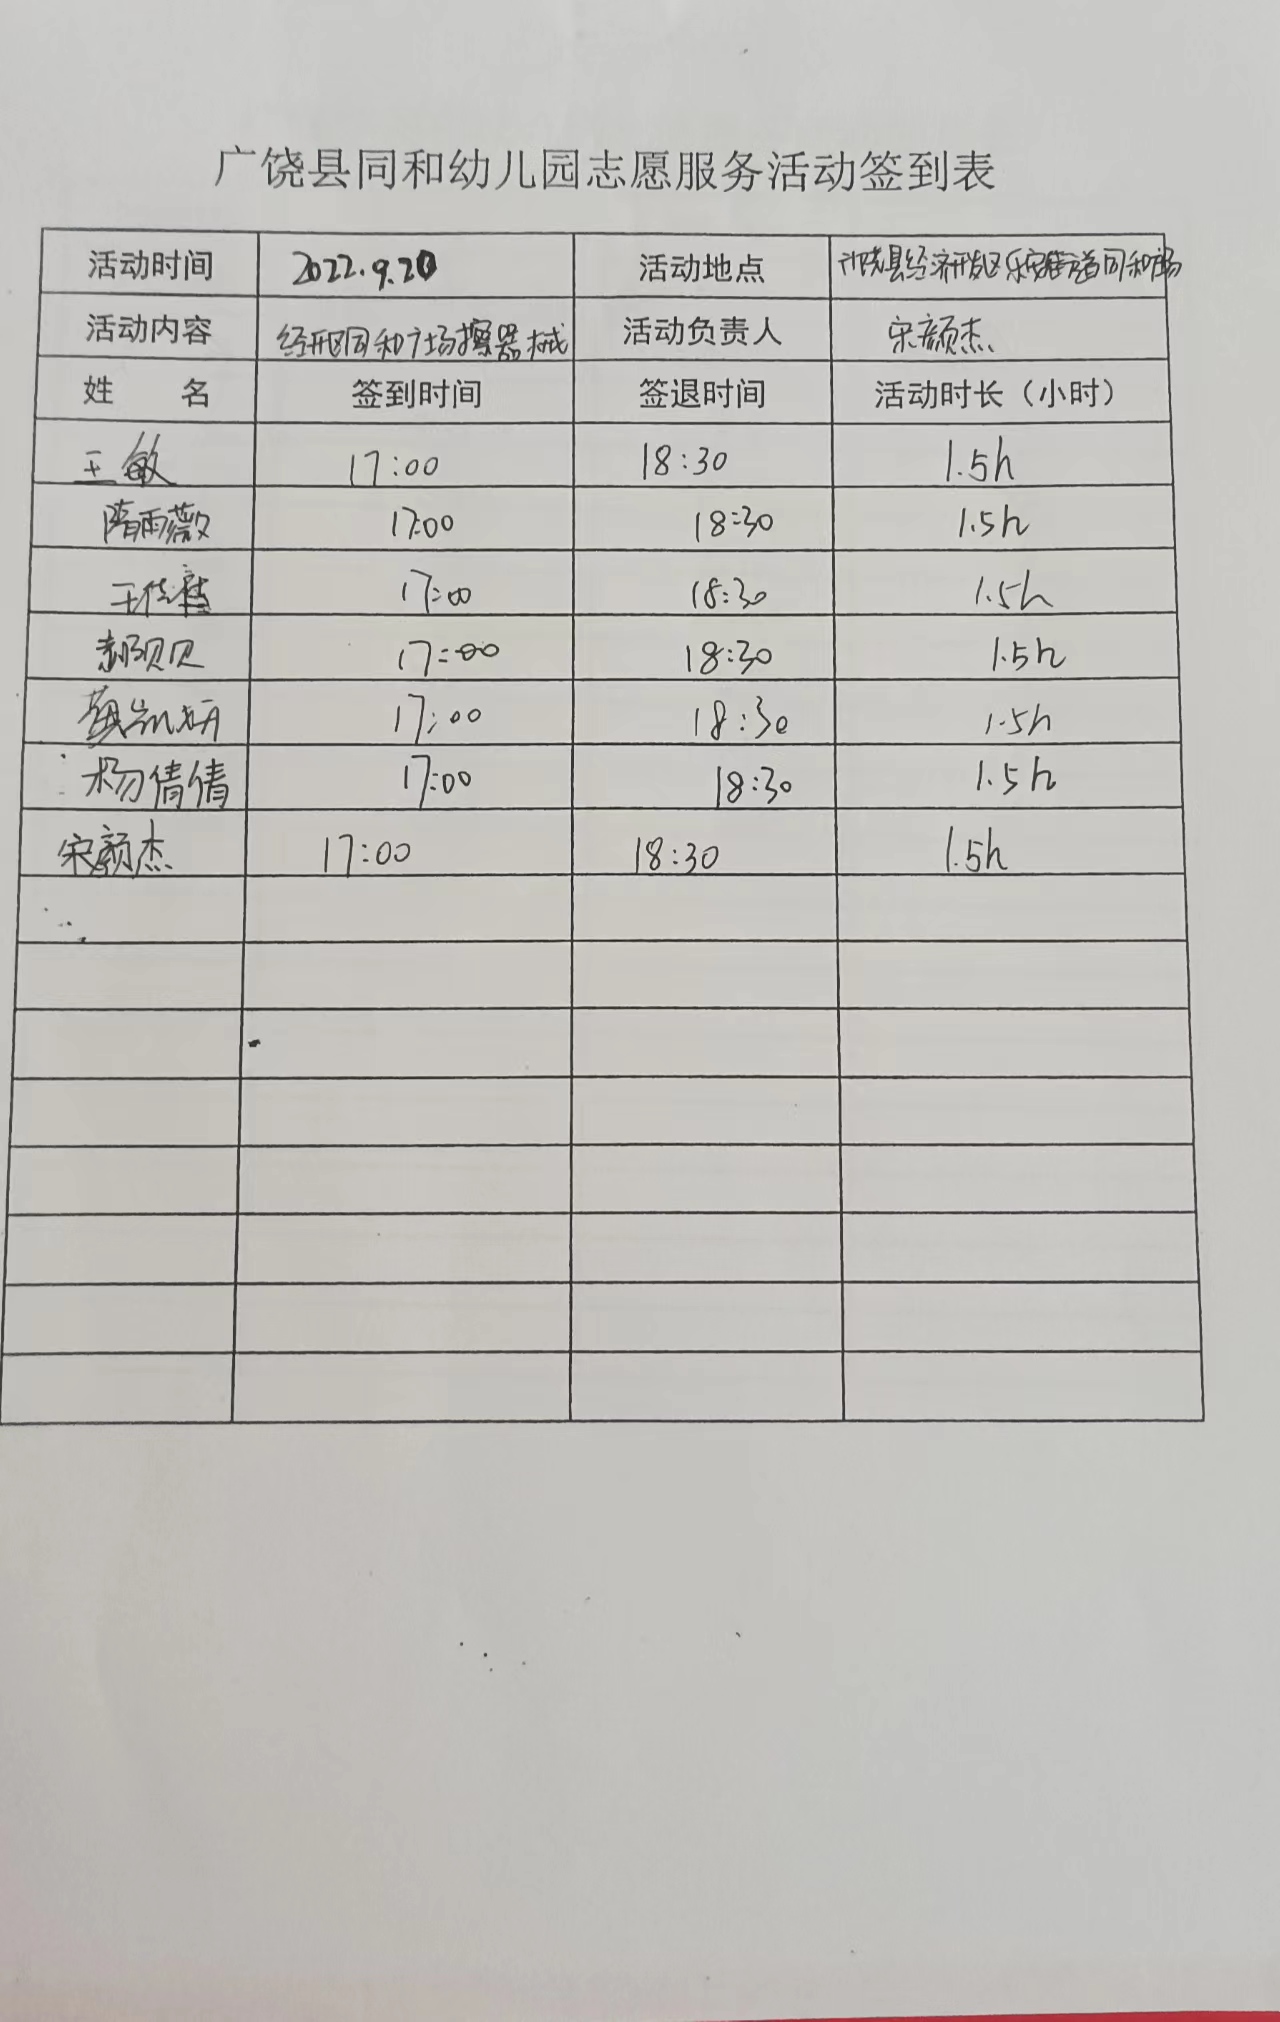 广饶县同和幼儿园志愿服务活动签到表
活动时间 2022.9.20 活动地点 广饶县经济开发区乐安街道同和广场
活动内容 经开区同和广场擦器械 活动负责人 宋颜杰
姓 名 签到时间 签退时间 活动时长（小时）
王敏 17:00 18:30 1.5h
隋雨薇 17:00 18:30 1.5h
17:00 18:30 1.5h
郝贝贝 17:00 18:30 1.5h
17:00 18:30 1.5h
杨倩倩 17:00 18:30 1.5h
宋颜杰 17:00 18:30 1.5h